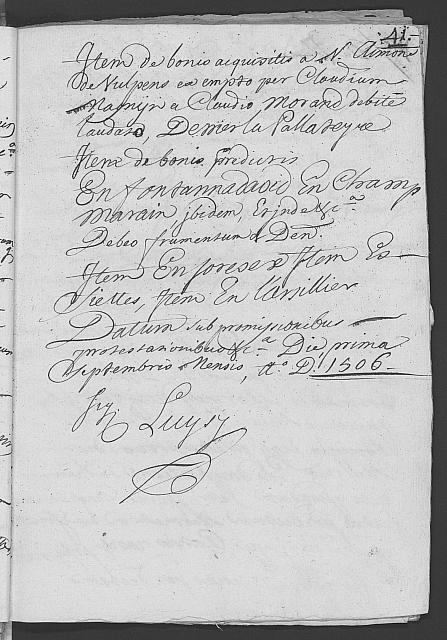 41.
Item de bonis acquisitis a N. Aimone
de Vulpens ex empto per Claudium
Magnyn a Claudio Morand debite
laudato, Derrier la Pallateyre
Item de bonis predictis
En fontannadavid En Champ
Marain ibidem, Et inde &c.a
Debeo frumentum & Den.
Item En sorese & Item Es
Sielles, Item En Larsillier
Datum sub promissionibus
protestationibus &c.a Die prima
Septembris Mensis, A.o D. 1506
Luysy